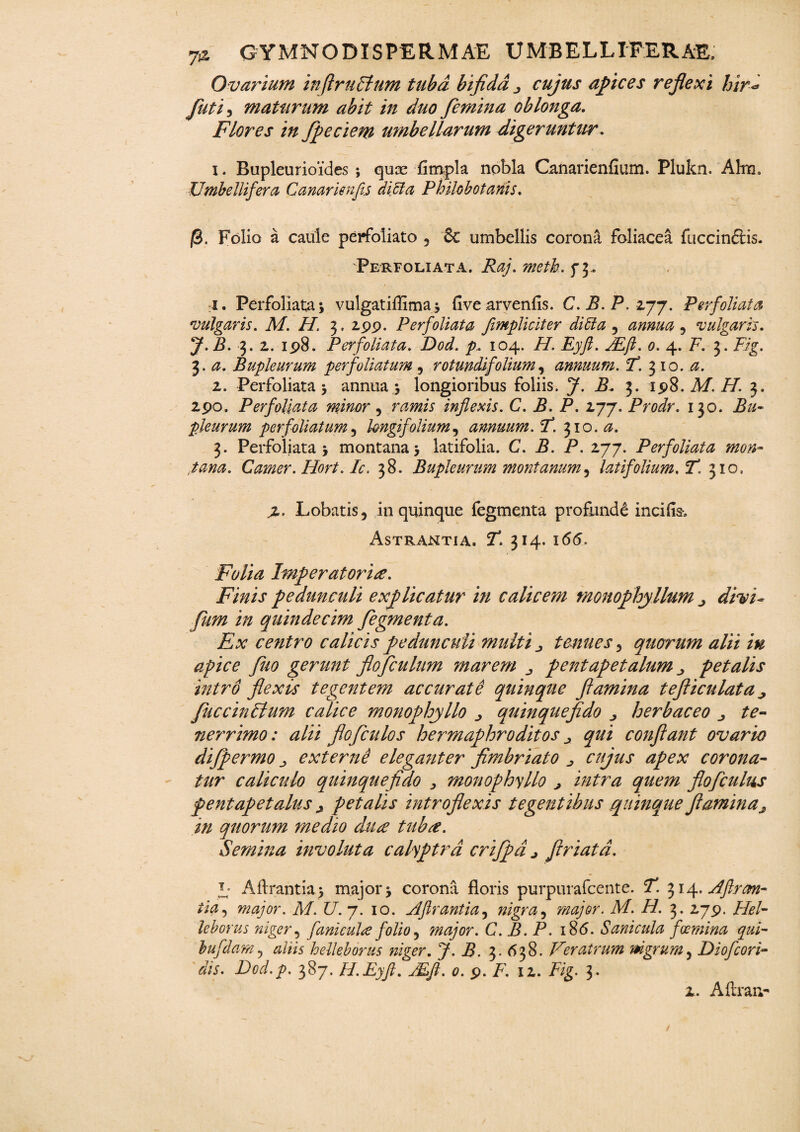 72 GYMNODISPERMAE UMBELLIFERAE.
Ovarium inſtructum tubâ bifidâ, cujus apices reflexi hir-
ſuti, maturum abit in duo ſemina oblonga.
Flores in ſpeciem umbellarum digeruntur.
1. Bupleurioïdes; quæ ſimpla nobla Canarienſium. Plukn. Alm.
Umbellifera Canarienſis dicta Philobotanis.
β. Folio à caule perfoliato, & umbellis coronâ foliaceâ ſuccinctis.
PERFOLIATA. Raj. meth. 53.
1. Perfoliata; vulgatiſſima; ſive arvenſis. C. B. P. 277. Perfoliata
vulgaris. M. H. 3. 299. Perfoliata ſimpliciter dicta, annua, vulgaris.
J. B. 3. 2. 198. Perfoliata. Dod. p. 104. H. Eyſt. Æſt. o. 4. F. 3. Fig.
3. a. Bupleurum perfoliatum, rotundifolium, annuum. T. 310. a.
2. Perfoliata; annua; longioribus foliis. J. B. 3. 198. M. H. 3.
290. Perfoliata minor, ramis inflexis. C. B. P. 277. Prodr. 130. Bu-
pleurum perfoliatum, longifolium, annuum. T. 310. a.
3. Perfoliata; montana; latifolia. C. B. P. 277. Perfoliata mon-
tana. Camer. Hort. Ic. 38. Bupleurum montanum, latifolium. T. 310.
2. Lobatis, in quinque ſegmenta profundè inciſis.
ASTRANTIA. T. 314. 166.
Folia Imperatoriæ.
Finis pedunculi explicatur in calicem monophyllum, divi-
ſum in quindecim ſegmenta.
Ex centro calicis pedunculi multi, tenues, quorum alii in
apice ſuo gerunt floſculum marem, pentapetalum, petalis
intrò flexis tegentem accuratè quinque ſtamina teſticulata,
ſuccinctum calice monophyllo, quinquefido, herbaceo, te-
nerrimo: alii floſculos hermaphroditos, qui conſtant ovario
diſpermo, externè eleganter fimbriato, cujus apex corona-
tur caliculo quinquefido, monophyllo, intra quem floſculus
pentapetalus, petalis introflexis tegentibus quinque ſtamina,
in quorum medio duæ tubæ.
Semina involuta calyptrâ criſpâ, ſtriatâ.
1. Aſtrantia; major; coronâ floris purpuraſcente. T. 314. Aſtran-
tia, major. M. U. 7. 10. Aſtrantia, nigra, major. M. H. 3. 279. Hel-
leborus niger, ſaniculæ folio, major. C. B. P. 186. Sanicula fœmina qui-
buſdam, aliis helleborus niger. J. B. 3. 638. Veratrum nigrum, Dioſcori-
dis. Dod. p. 387. H. Eyſt. Æſt. o. 9. F. 12. Fig. 3.
2. Aſtran-